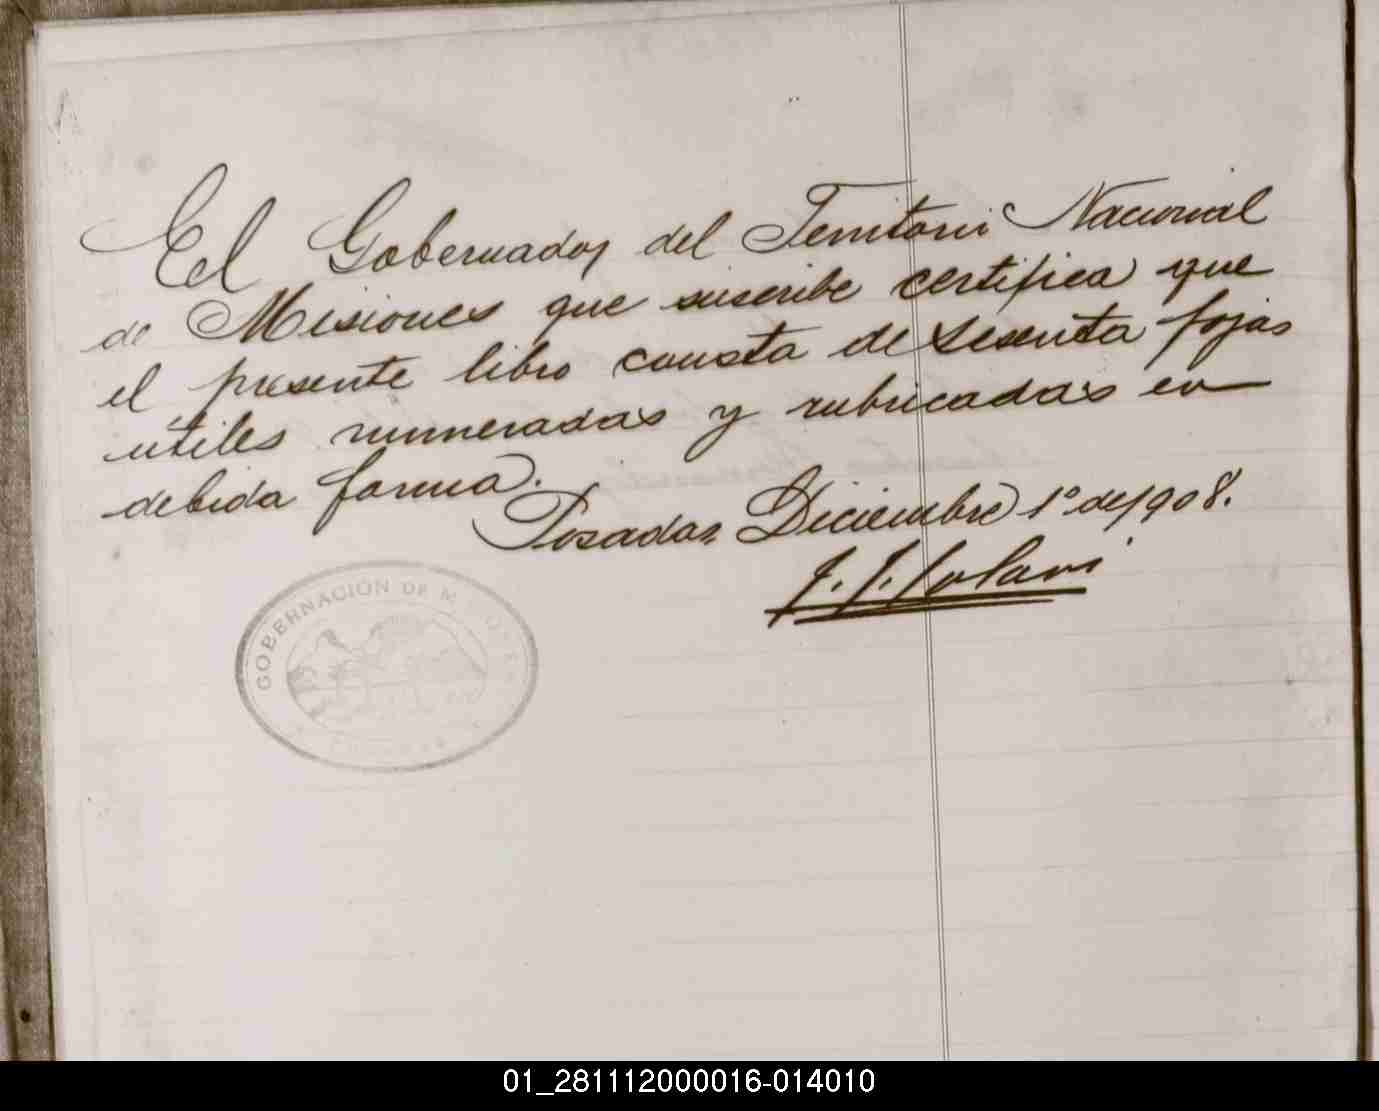 El Gobernador del Territorio Nacional
de Misiones que suscribe certifica que
el presente libro consta de sesenta fojas
utiles numeradas y rubricadas en
debida forma.
Posadas, Diciembre 1º de 1908.
J. J. Solari
GOBERNACIÓN DE MISIONES
01_281112000016-014010